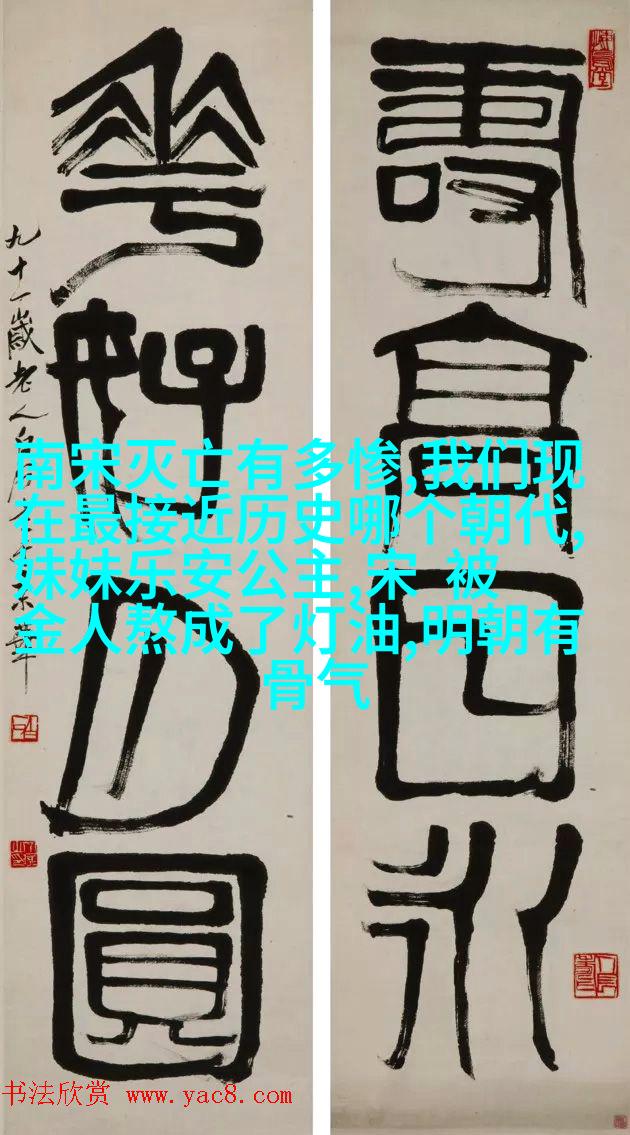 壽高日永
華好月圓
九十一歲老人白
京華
南宋灭亡有多惨,我们现
在最接近历史哪个朝代,
妹妹乐安公主,宋 被
金人熬成了灯油,明朝有
骨气
书法欣赏 www.yac8.com